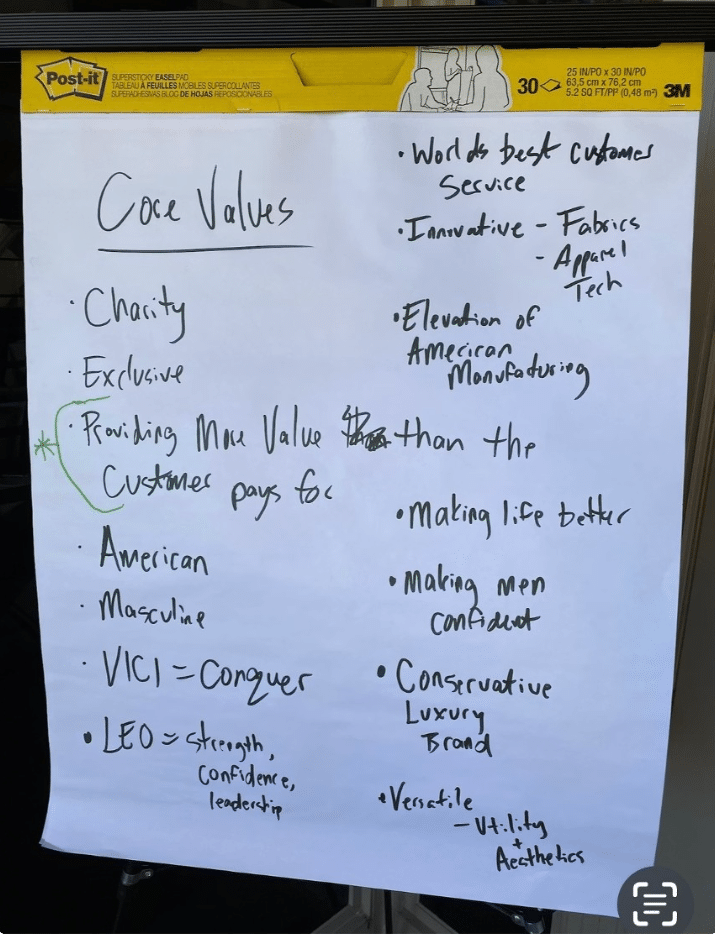 Post-it
SUPERSTICKY EASEL PAD
TABLEAU À FEUILLES MOBILES SUPERCOLLANTES
SUPERADHESIVAS BLOC DE HOJAS REPOSICIONABLES
30
25 IN/PO x 30 IN/PO
63,5 cm x 76,2 cm
5.2 SQ FT/PI² (0,48 m²)
3M
Core Values
· Charity
· Exclusive
* · Providing More Value than the
Customer pays for
· American
· Masculine
· VICI = Conquer
• LEO = strength,
confidence,
leadership
• Worlds best customer
Service
• Innovative - Fabrics
- Apparel
Tech
• Elevation of
American
Manufacturing
• Making life better
• Making men
confident
• Conservative
Luxury
Brand
• Versatile
- Utility
+
Aesthetics